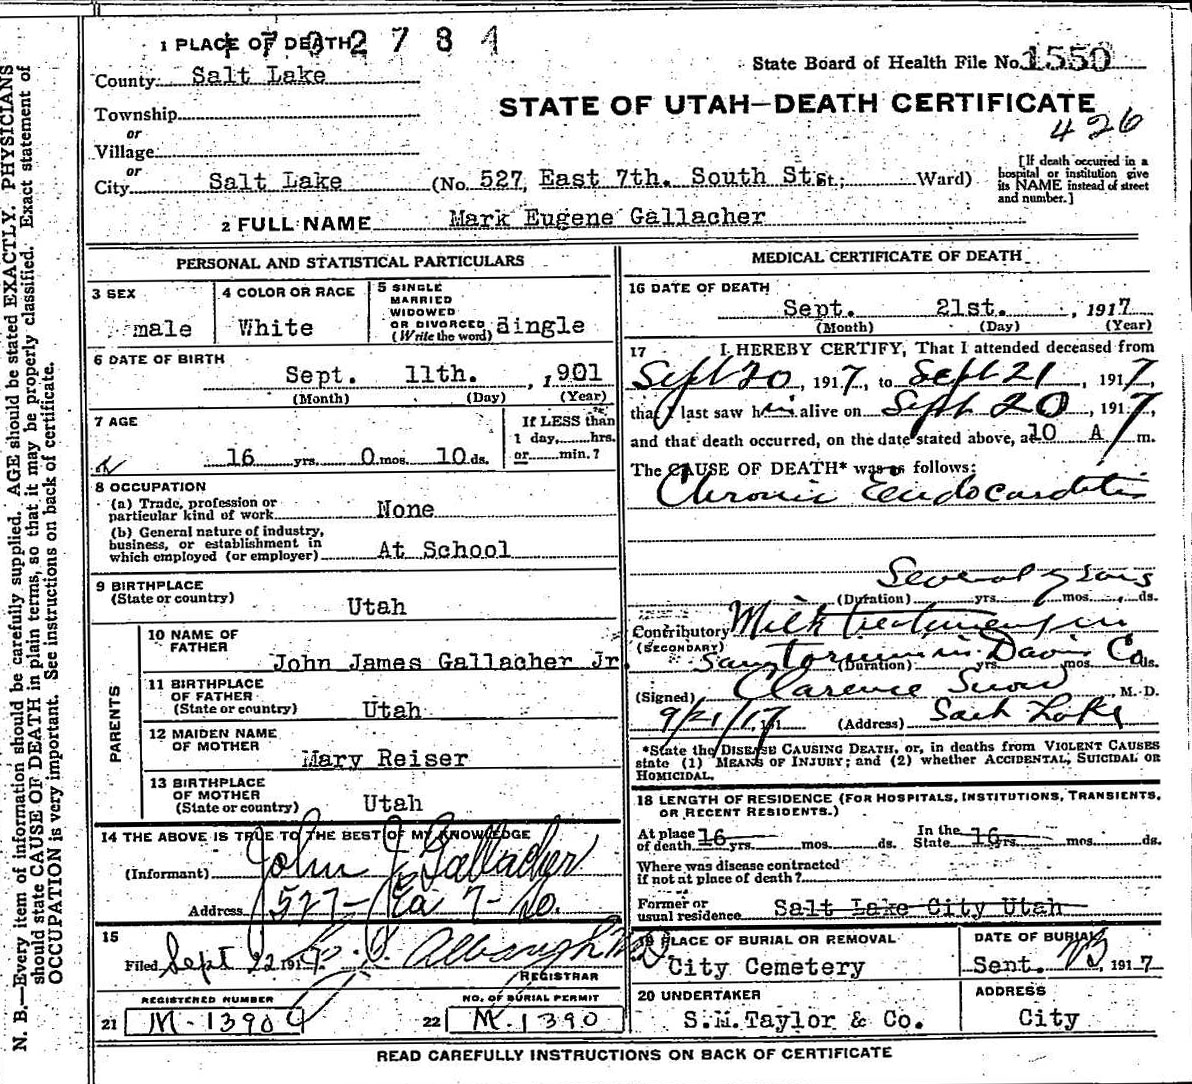 N. B.—Every item of information should be carefully supplied. AGE should be stated EXACTLY. PHYSICIANS
should state CAUSE OF DEATH in plain terms, so that it may be properly classified. Exact statement of
OCCUPATION is very important. See instructions on back of certificate.
1 PLACE OF DEATH 2784
County Salt Lake
State Board of Health File No. 1550
STATE OF UTAH—DEATH CERTIFICATE
426
Township
or
Village
or
City Salt Lake (No. 527 East 7th. South St. St.; Ward)
[If death occurred in a
hospital or institution give
its NAME instead of street
and number.]
2 FULL NAME Mark Eugene Gallacher
PERSONAL AND STATISTICAL PARTICULARS
3 SEX
male
4 COLOR OR RACE
White
5 SINGLE
MARRIED
WIDOWED
OR DIVORCED
(Write the word) single
6 DATE OF BIRTH
Sept. 11th. , 1901
(Month) (Day) (Year)
7 AGE
16 yrs. 0 mos. 10 ds.
If LESS than
1 day, hrs.
or min.?
8 OCCUPATION
(a) Trade, profession or
particular kind of work None
(b) General nature of industry,
business, or establishment in
which employed (or employer) At School
9 BIRTHPLACE
(State or country) Utah
PARENTS
10 NAME OF
FATHER
John James Gallacher Jr.
11 BIRTHPLACE
OF FATHER
(State or country) Utah
12 MAIDEN NAME
OF MOTHER
Mary Reiser
13 BIRTHPLACE
OF MOTHER
(State or country) Utah
14 THE ABOVE IS TRUE TO THE BEST OF MY KNOWLEDGE
(Informant) John J. Gallacher
Address 527 - Ea 7 - So.
15
Filed Sept 22 1917
REGISTRAR
REGISTERED NUMBER
21 M-1390
NO. OF BURIAL PERMIT
22 M.1390
MEDICAL CERTIFICATE OF DEATH
16 DATE OF DEATH
Sept. 21st. , 1917
(Month) (Day) (Year)
17 I HEREBY CERTIFY, That I attended deceased from
Sept 20, 1917, to Sept 21, 1917,
that I last saw him alive on Sept 20, 1917,
and that death occurred, on the date stated above, at 10 A m.
The CAUSE OF DEATH* was as follows:
Chronic Endocarditis
Several years
(Duration) yrs. mos. ds.
Contributory Milk treatment in
(SECONDARY)
Sanitorium in Davis Co
(Duration) yrs. mos. ds.
(Signed) Clarence Snow, M. D.
9/21/17 191 (Address) Salt Lake
*State the DISEASE CAUSING DEATH, or, in deaths from VIOLENT CAUSES
state (1) MEANS OF INJURY; and (2) whether ACCIDENTAL, SUICIDAL OR
HOMICIDAL.
18 LENGTH OF RESIDENCE (FOR HOSPITALS, INSTITUTIONS, TRANSIENTS,
OR RECENT RESIDENTS.)
At place
of death 16 yrs. mos. ds.
In the
State 16 yrs. mos. ds.
Where was disease contracted
if not at place of death?
Former or
usual residence Salt Lake City Utah
19 PLACE OF BURIAL OR REMOVAL
City Cemetery
DATE OF BURIAL
Sept. 23, 1917
20 UNDERTAKER
S.M.Taylor & Co.
ADDRESS
City
READ CAREFULLY INSTRUCTIONS ON BACK OF CERTIFICATE